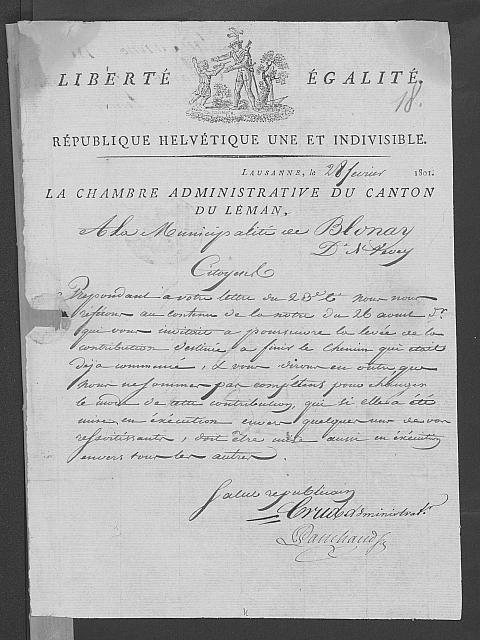 LIBERTÉ ÉGALITÉ.
18.
RÉPUBLIQUE HELVÉTIQUE UNE ET INDIVISIBLE.
LAUSANNE, le 28 fevrier 1801.
LA CHAMBRE ADMINISTRATIVE DU CANTON
DU LÉMAN,
A la Municipalité de Blonay
Dt. Vevey
Citoyens
Repondant a votre lettre du 23e Ct. nous nous
refferons au contenu de la notre du 26 aoust dr.
qui vous invitait a poursuivre la levée de la
contribution destinée a finir le chemin qui était
déja commencé, & vous dirons en outre que
nous ne sommes pas compétens pour changer
le mode de cette contribution, qui si elle a été
mise en exécution envers quelques uns de vos
ressortissants, doit être mise aussi en exécution
envers tous les autres.
Salut republicain
Crud administratr.
Panchaud